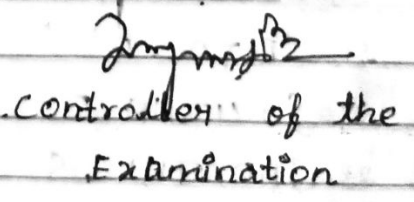 controller of the
Examination